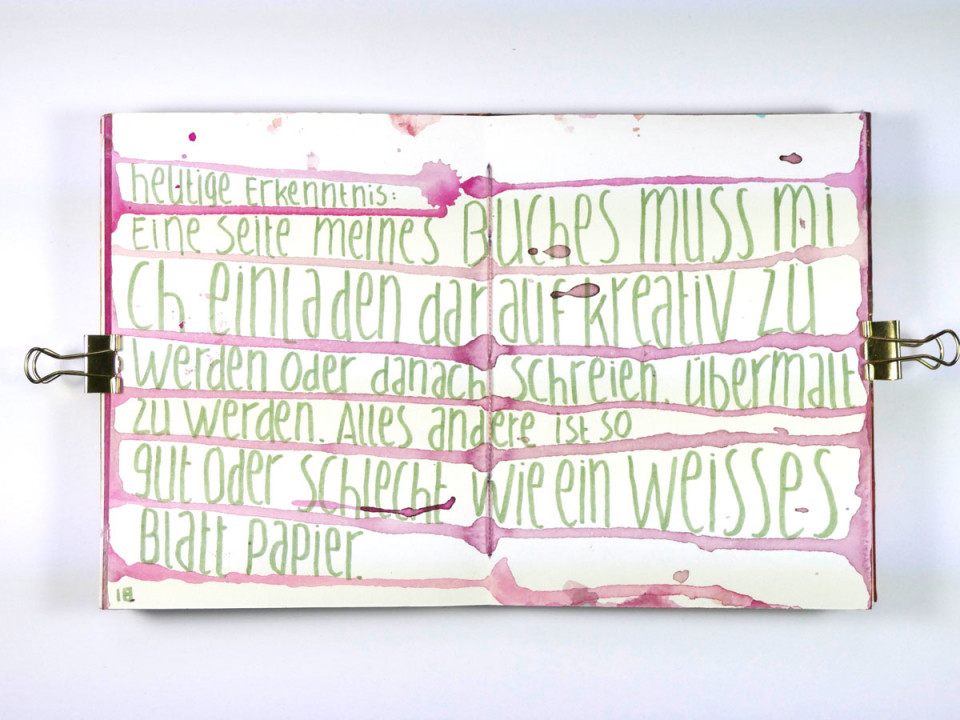 heutige Erkenntnis:
Eine Seite meines Buches muss mi
ch einladen darauf kreativ zu
werden oder danach schreien, übermalt
zu werden. Alles andere ist so
gut oder schlecht wie ein weisses
Blatt papier.